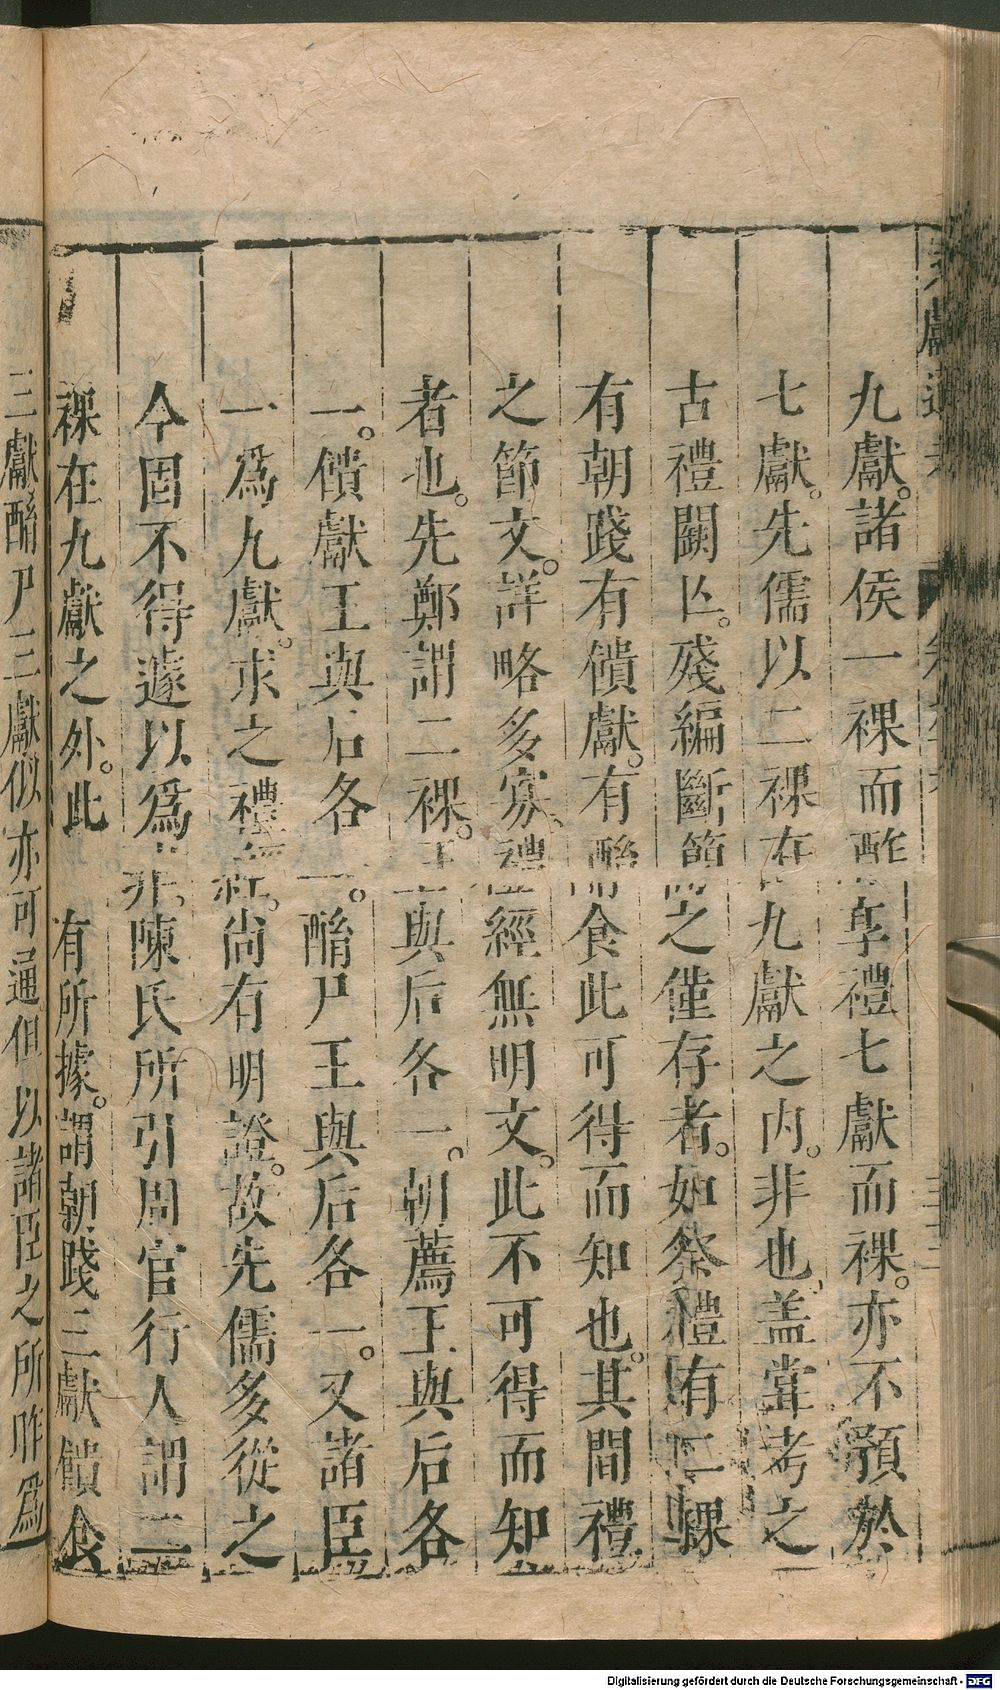 九獻。諸侯一祼而酢享禮七獻而祼。亦不預於
七獻。先儒以二祼在九獻之内。非也蓋嘗考之
古禮闕亾。殘編斷簡之僅存者。如祭禮有二祼
有朝踐有饋獻。有酳食此可得而知也。其間禮
之節文。詳略多寡。禮經無明文。此不可得而知
者也。先鄭謂二祼。王與后各一。朝薦王與后各
一。饋獻王與后各一。酳尸王與后各一。又諸臣
一爲九獻。求之禮經。尚有明證。故先儒多從之
今固不得遽以爲非。陳氏所引周官行人謂二
祼在九獻之外。此有所據。謂朝踐三獻饋食
三獻酳尸三獻似亦可通但以諸臣之所昨爲
Digitalisierung gefördert durch die Deutsche Forschungsgemeinschaft - DFG